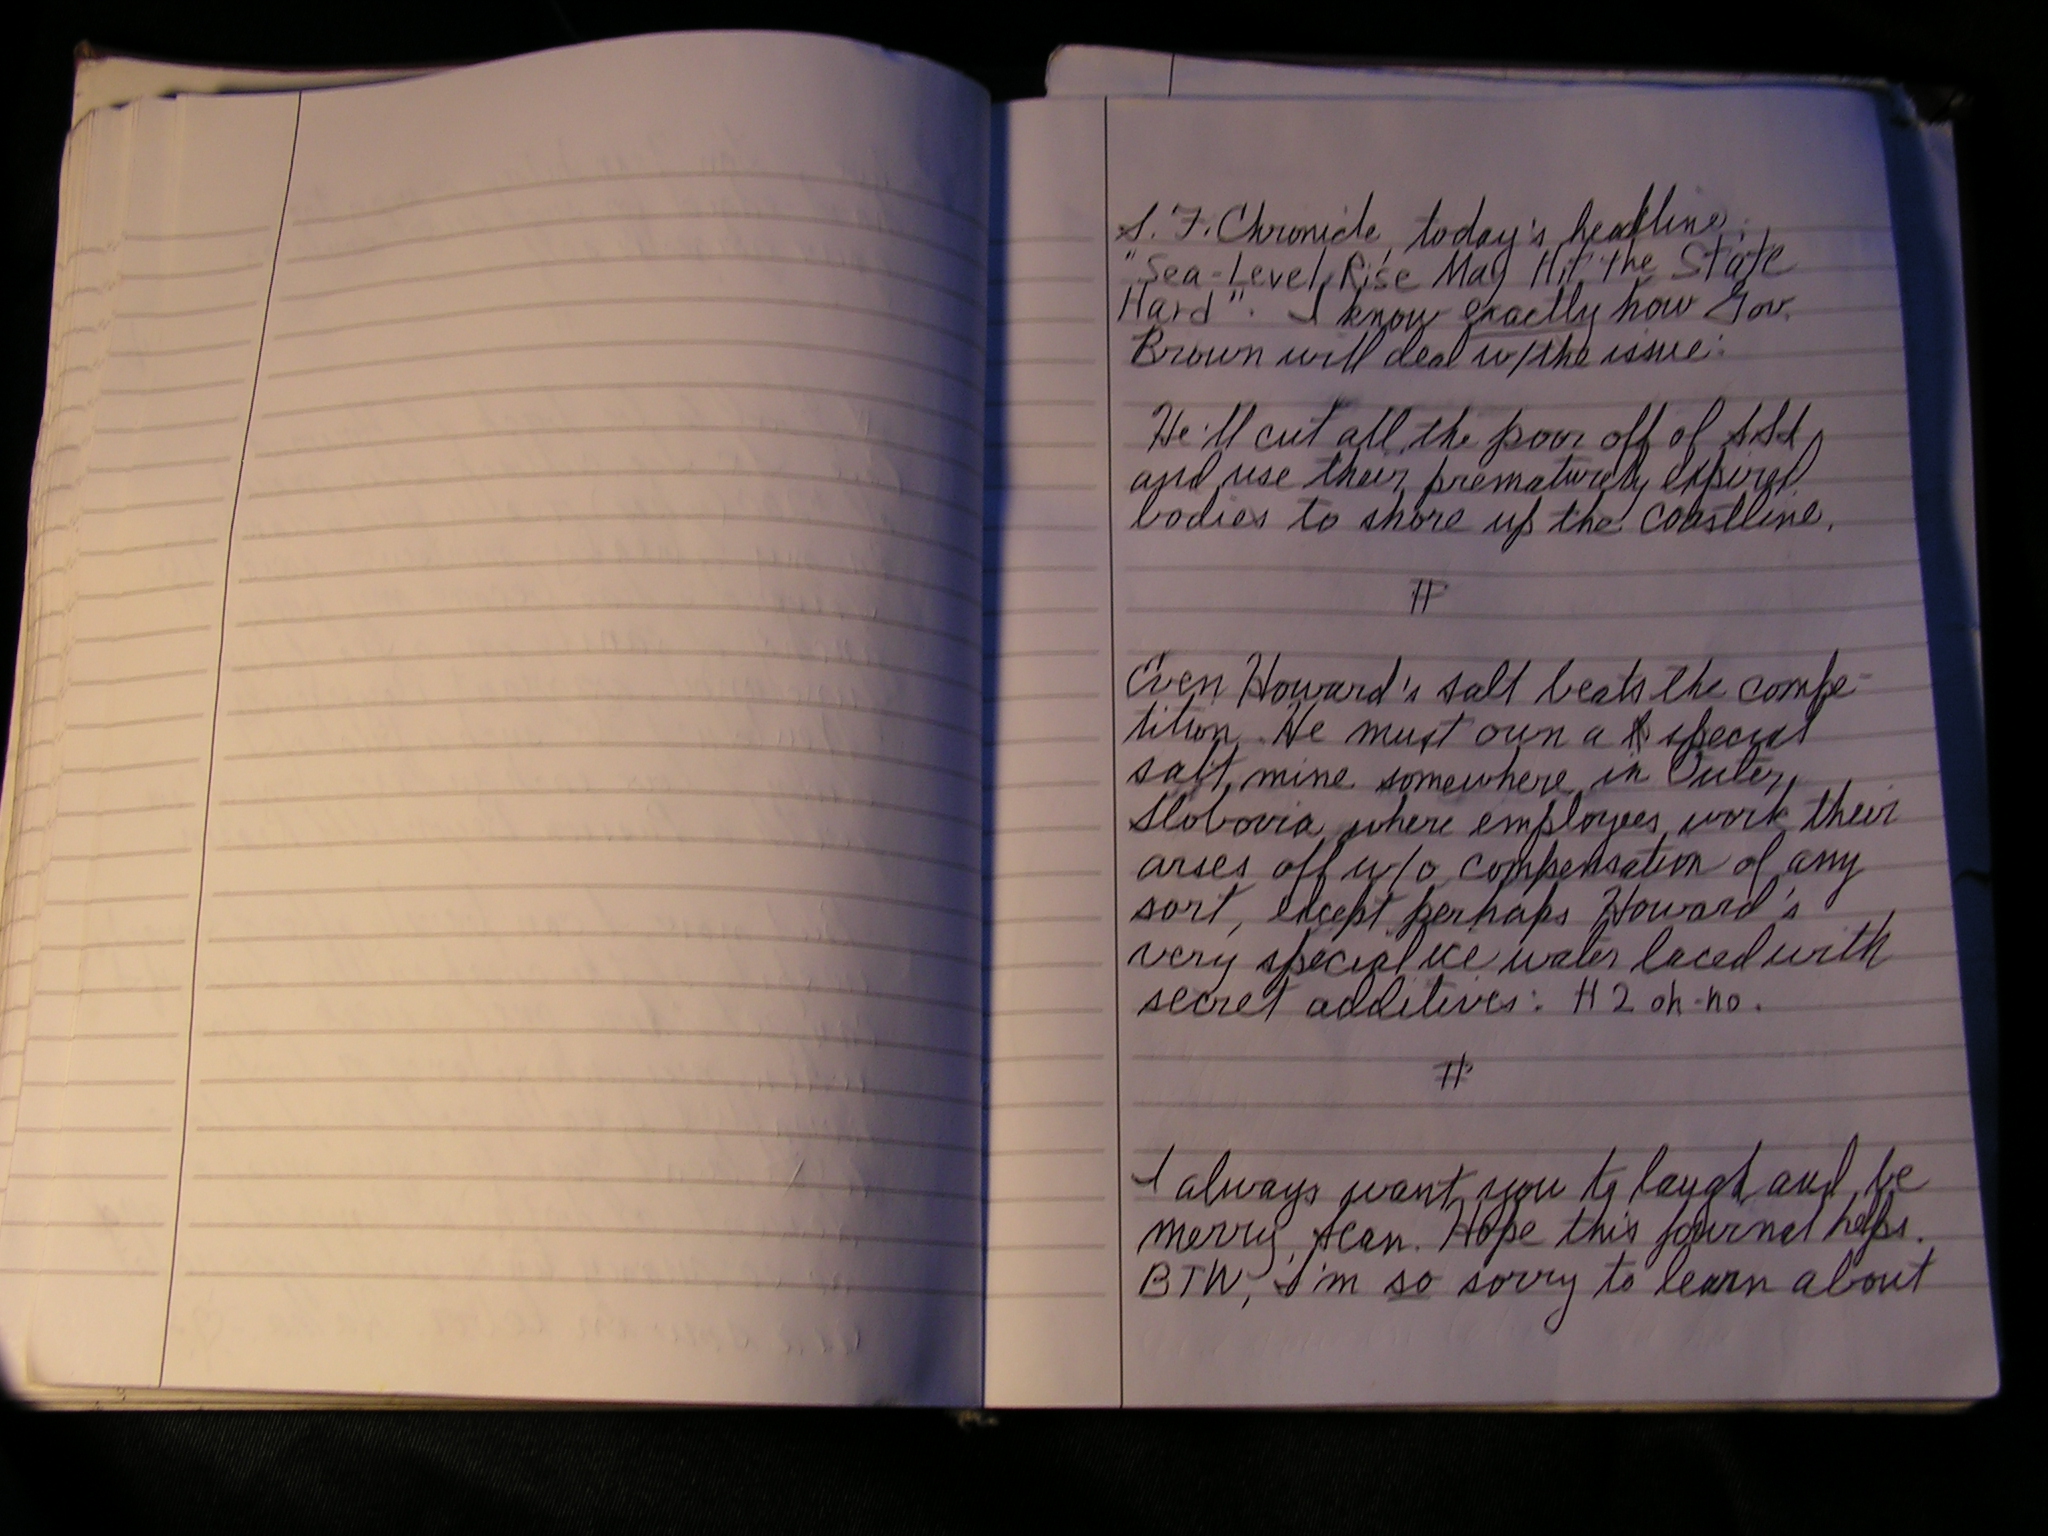 S. F. Chronicle, today's headline:
"Sea-Level Rise May Hit the State
Hard". I know exactly how Gov.
Brown will deal w/the issue:
He'll cut all the poor off of SSI,
and use their prematurely expired
bodies to shore up the coastline.
#
Even Howard's salt beats the compe-
tition. He must own a special
salt mine somewhere in Outer
Slobovia where employees work their
arses off w/o compensation of any
sort, except perhaps Howard's
very special ice water laced with
secret additives: H2oh-no.
#
I always want you to laugh and be
merry, Jean. Hope this journal helps.
BTW, I'm so sorry to learn about